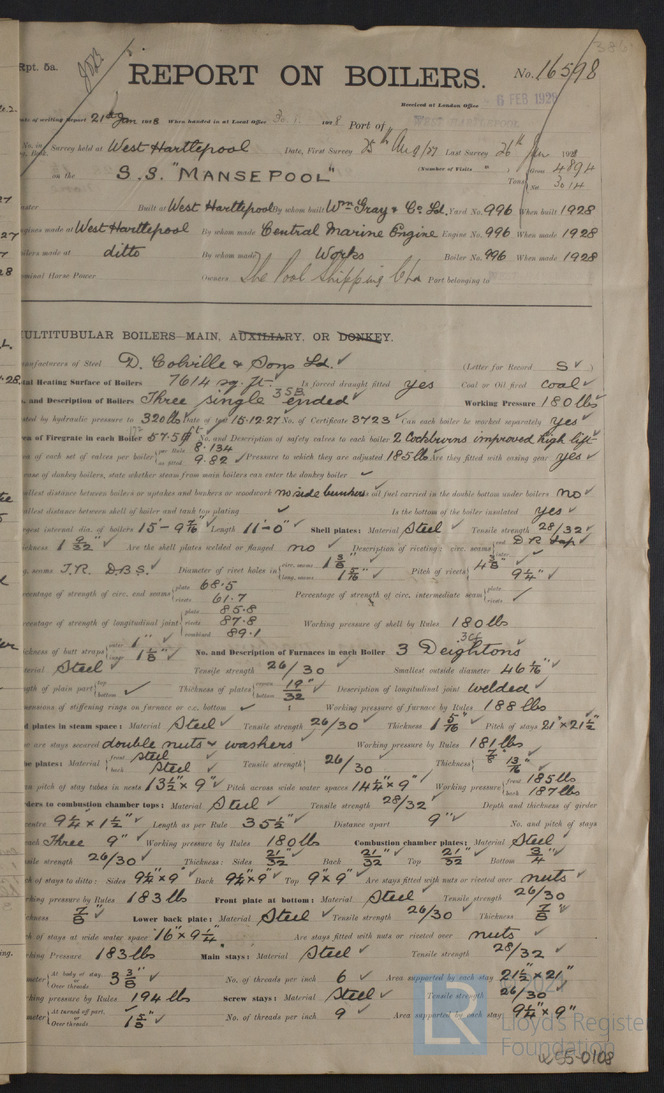 Rpt. 5a.
REPORT ON BOILERS.
No. 16598
Received at London Office
6 FEB 1928
of writing Report 21st Jan 1928 When handed in at Local Office 192 Port of WEST HARTLEPOOL
Survey held at West Hartlepool Date, First Survey 25th Aug/27 Last Survey 26th Jan 1928
on the S.S. "MANSEPOOL" (Number of Visits ) Tons Gross 4894 Net 3014
Built at West Hartlepool By whom built Wm Gray & Co Ld. Yard No. 996 When built 1928
made at West Hartlepool By whom made Central Marine Engine Engine No. 996 When made 1928
made at ditto By whom made Works Boiler No. 996 When made 1928
Horse Power Owners The Pool Shipping Co Ld Port belonging to
MULTITUBULAR BOILERS—MAIN, AUXILIARY, OR DONKEY.
Manufacturers of Steel D. Colville & Sons Ld. ✓ (Letter for Record S ✓)
Total Heating Surface of Boilers 7614 sq. ft. Is forced draught fitted yes Coal or Oil fired coal ✓
and Description of Boilers Three single ended 3 SB Working Pressure 180 lbs
by hydraulic pressure to 320 lbs Date of test 15.12.27 No. of Certificate 3723 ✓ Can each boiler be worked separately yes ✓
of Firegrate in each Boiler 57.5 ft No. and Description of safety valves to each boiler 2 Cockburns improved high lift
of each set of valves per boiler per Rule 8.134 as fitted 9.82 ✓ Pressure to which they are adjusted 185 lb Are they fitted with easing gear yes ✓
case of donkey boilers, state whether steam from main boilers can enter the donkey boiler ✓
Smallest distance between boilers or uptakes and bunkers or woodwork no side bunkers Is oil fuel carried in the double bottom under boilers no ✓
Smallest distance between shell of boiler and tank top plating ✓ Is the bottom of the boiler insulated yes ✓
Largest internal dia. of boilers 15'-9 7/16" ✓ Length 11'-0" ✓ Shell plates: Material Steel ✓ Tensile strength 28/32 ✓
Thickness 1 9/32" ✓ Are the shell plates welded or flanged no ✓ Description of riveting: circ. seams end DR Lap inter.
seams T.R. D.B.S. ✓ Diameter of rivet holes in circ. seams 1 3/8" long. seams 1 5/16" ✓ Pitch of rivets 4 3/8" 9 1/4" ✓
Percentage of strength of circ. end seams plate 68.5 rivets 61.7 Percentage of strength of circ. intermediate seam plate rivets ✓
Percentage of strength of longitudinal joint plate 85.8 rivets 87.8 combined 89.1 Working pressure of shell by Rules 180 lbs
Thickness of butt straps outer 1" inner 1 1/8" ✓ No. and Description of Furnaces in each Boiler 3 Deightons
Material Steel ✓ Tensile strength 26/30 ✓ Smallest outside diameter 46 7/16" ✓
Length of plain part top bottom ✓ Thickness of plates crown bottom 19/32" ✓ Description of longitudinal joint welded ✓
Dimensions of stiffening rings on furnace or c.c. bottom ✓ Working pressure of furnace by Rules 188 lbs
End plates in steam space: Material Steel ✓ Tensile strength 26/30 ✓ Thickness 1 5/16" ✓ Pitch of stays 21" x 21 1/2"
How are stays secured double nuts & washers Working pressure by Rules 181 lbs
Tube plates: Material front Steel back Steel ✓ Tensile strength 26/30 ✓ Thickness 7/8" 13/16" ✓
pitch of stay tubes in nests 13 1/2" x 9" ✓ Pitch across wide water spaces 14 1/4" x 9" ✓ Working pressure front 185 lbs back 187 lbs
Girders to combustion chamber tops: Material Steel ✓ Tensile strength 28/32 ✓ Depth and thickness of girder
centre 9 1/4" x 1 1/2" ✓ Length as per Rule 35 1/2" ✓ Distance apart 9" ✓ No. and pitch of stays
each Three 9" ✓ Working pressure by Rules 180 lb Combustion chamber plates: Material Steel ✓
Tensile strength 26/30 ✓ Thickness: Sides 21/32" Back 21/32" Top 21/32" Bottom 3/4" ✓
Pitch of stays to ditto: Sides 9 1/4" x 9" Back 9 1/4" x 9" Top 9" x 9" ✓ Are stays fitted with nuts or riveted over nuts ✓
Working pressure by Rules 183 lb Front plate at bottom: Material Steel ✓ Tensile strength 26/30
Thickness 7/8" ✓ Lower back plate: Material Steel ✓ Tensile strength 26/30 ✓ Thickness 7/8" ✓
Pitch of stays at wide water space 16" x 9 1/4" ✓ Are stays fitted with nuts or riveted over nuts ✓
Working Pressure 183 lb Main stays: Material Steel ✓ Tensile strength 28/32 ✓
Diameter At body of stay, Over threads 3 3/8" ✓ No. of threads per inch 6 ✓ Area supported by each stay 21 1/2" x 21"
Working pressure by Rules 194 lbs Screw stays: Material Steel ✓ Tensile strength 26/30
Diameter At turned off part, Over threads 1 5/8" ✓ No. of threads per inch 9 ✓ Area supported by each stay 9 1/4" x 9"
LR
Lloyd's Register
Foundation
W255-0108